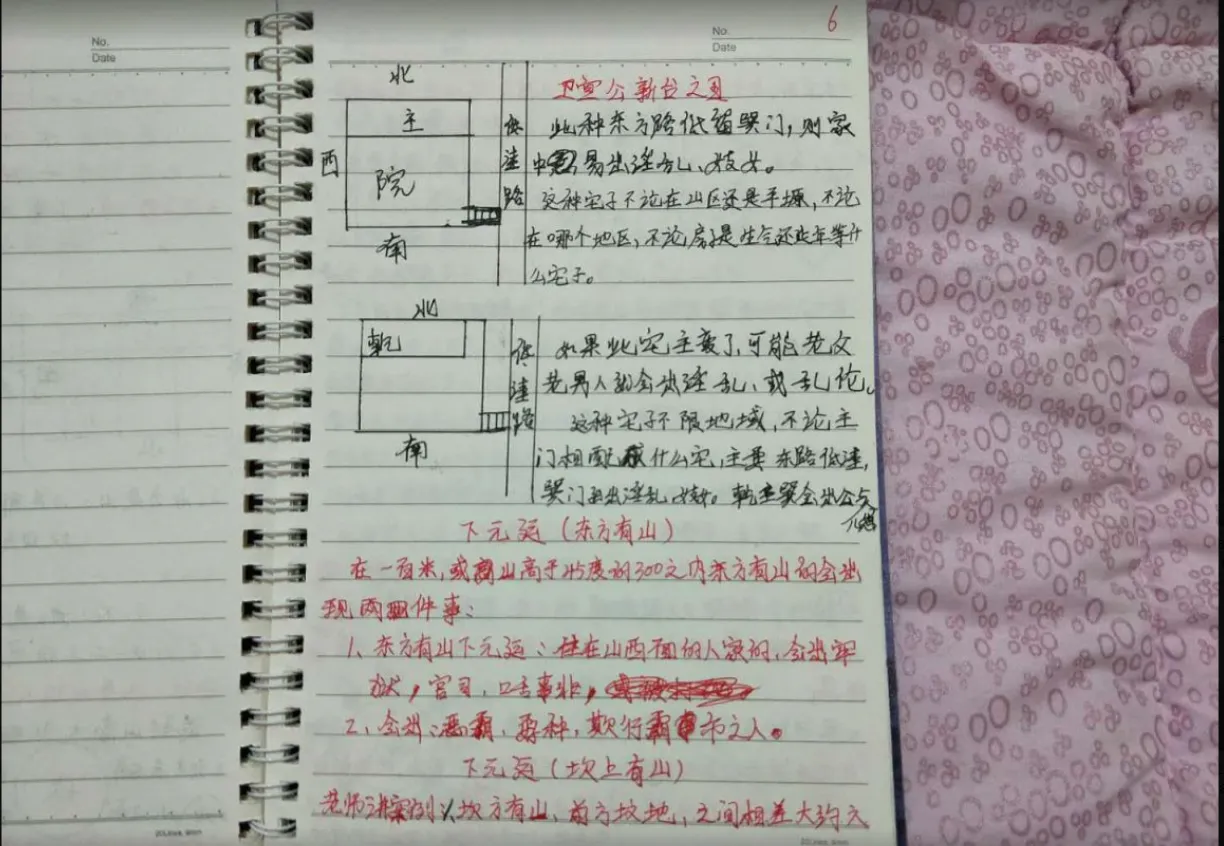 No.
Date
No.
Date
6
北
主
西
院
南
低洼路
卫宣公新台之图
此种东方路低洼巽门，则家
中易出淫乱、妓女。
这种宅子不论在山区还是平塬，不论
在哪个地区，不论房子是生气还是延年等什
么宅子。
北
乾
南
低洼路
如果此宅主变了，可能老女
老男人都会出淫乱、或乱伦。
这种宅子不限地域，不论主
门相配成什么宅，主要东路低洼，
巽门出淫乱妓女。乾主巽会出公与
儿媳
下元运（东方有山）
在一百米，或山高于45度的300之内东方有山的会出
现两件事：
1、东方有山下元运：住在山西面的人家的，会出牢
狱，官司，口舌事非，
2、会出：恶霸，孬种，欺行霸市之人。
下元运（坎上有山）
老师讲案例：坎方有山，前方坟地，之间相差大约六